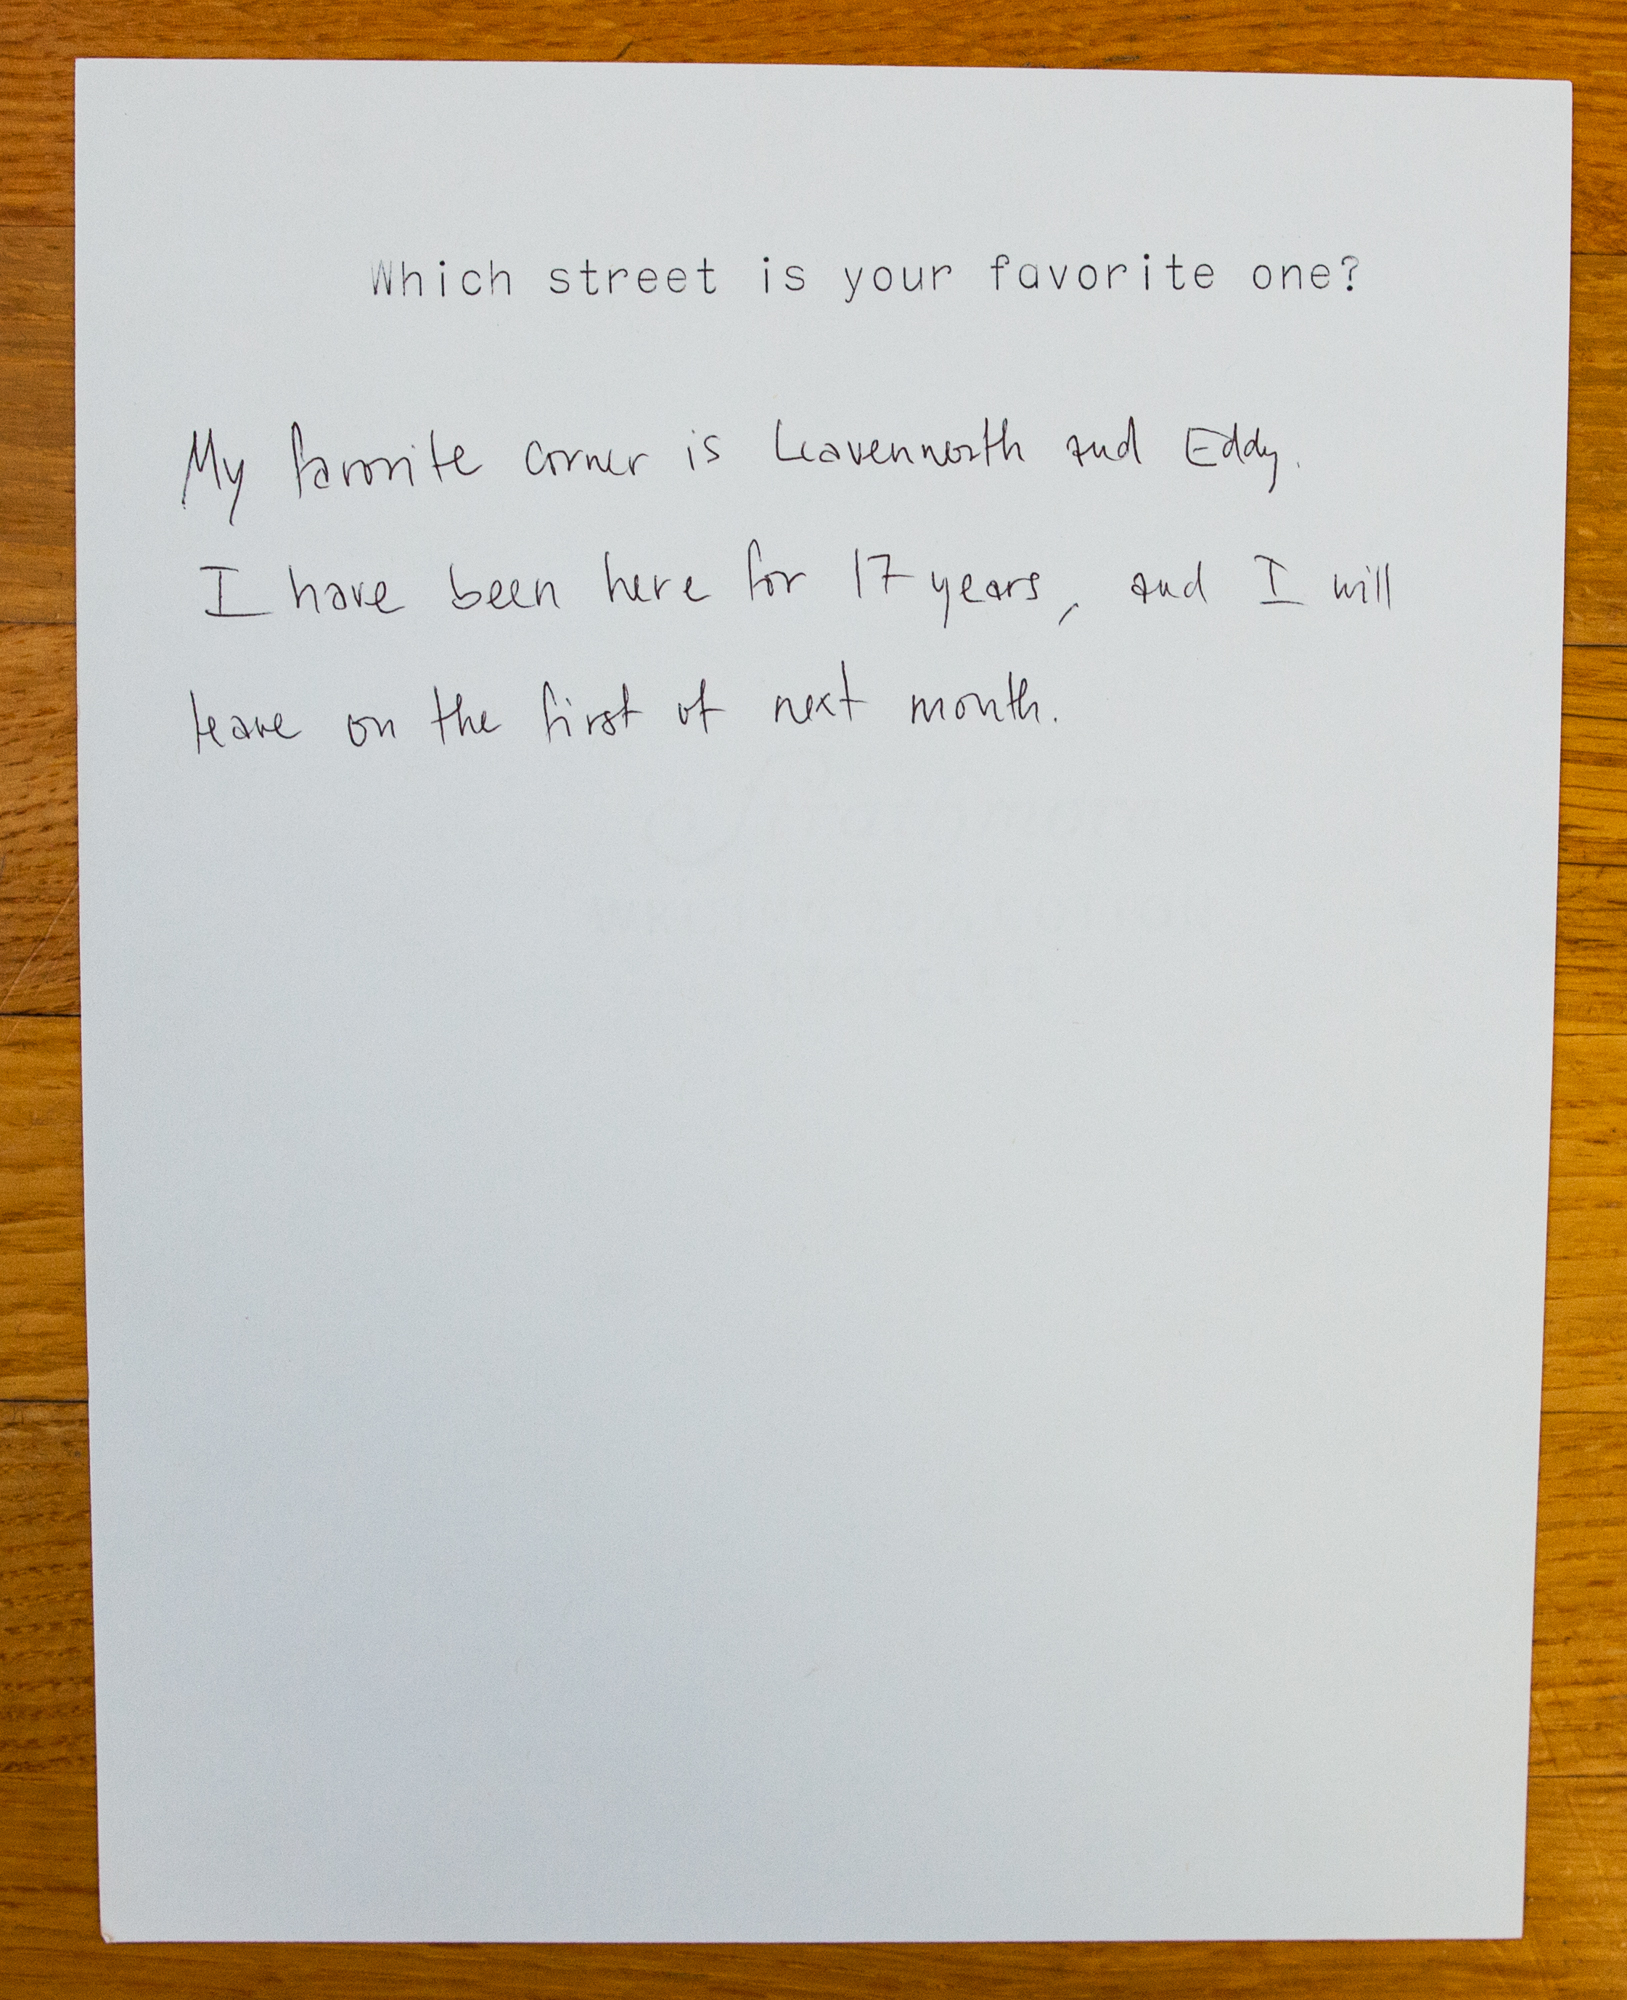 Which street is your favorite one?
My favorite corner is Leavenworth and Eddy.
I have been here for 17 years, and I will
leave on the first of next month.